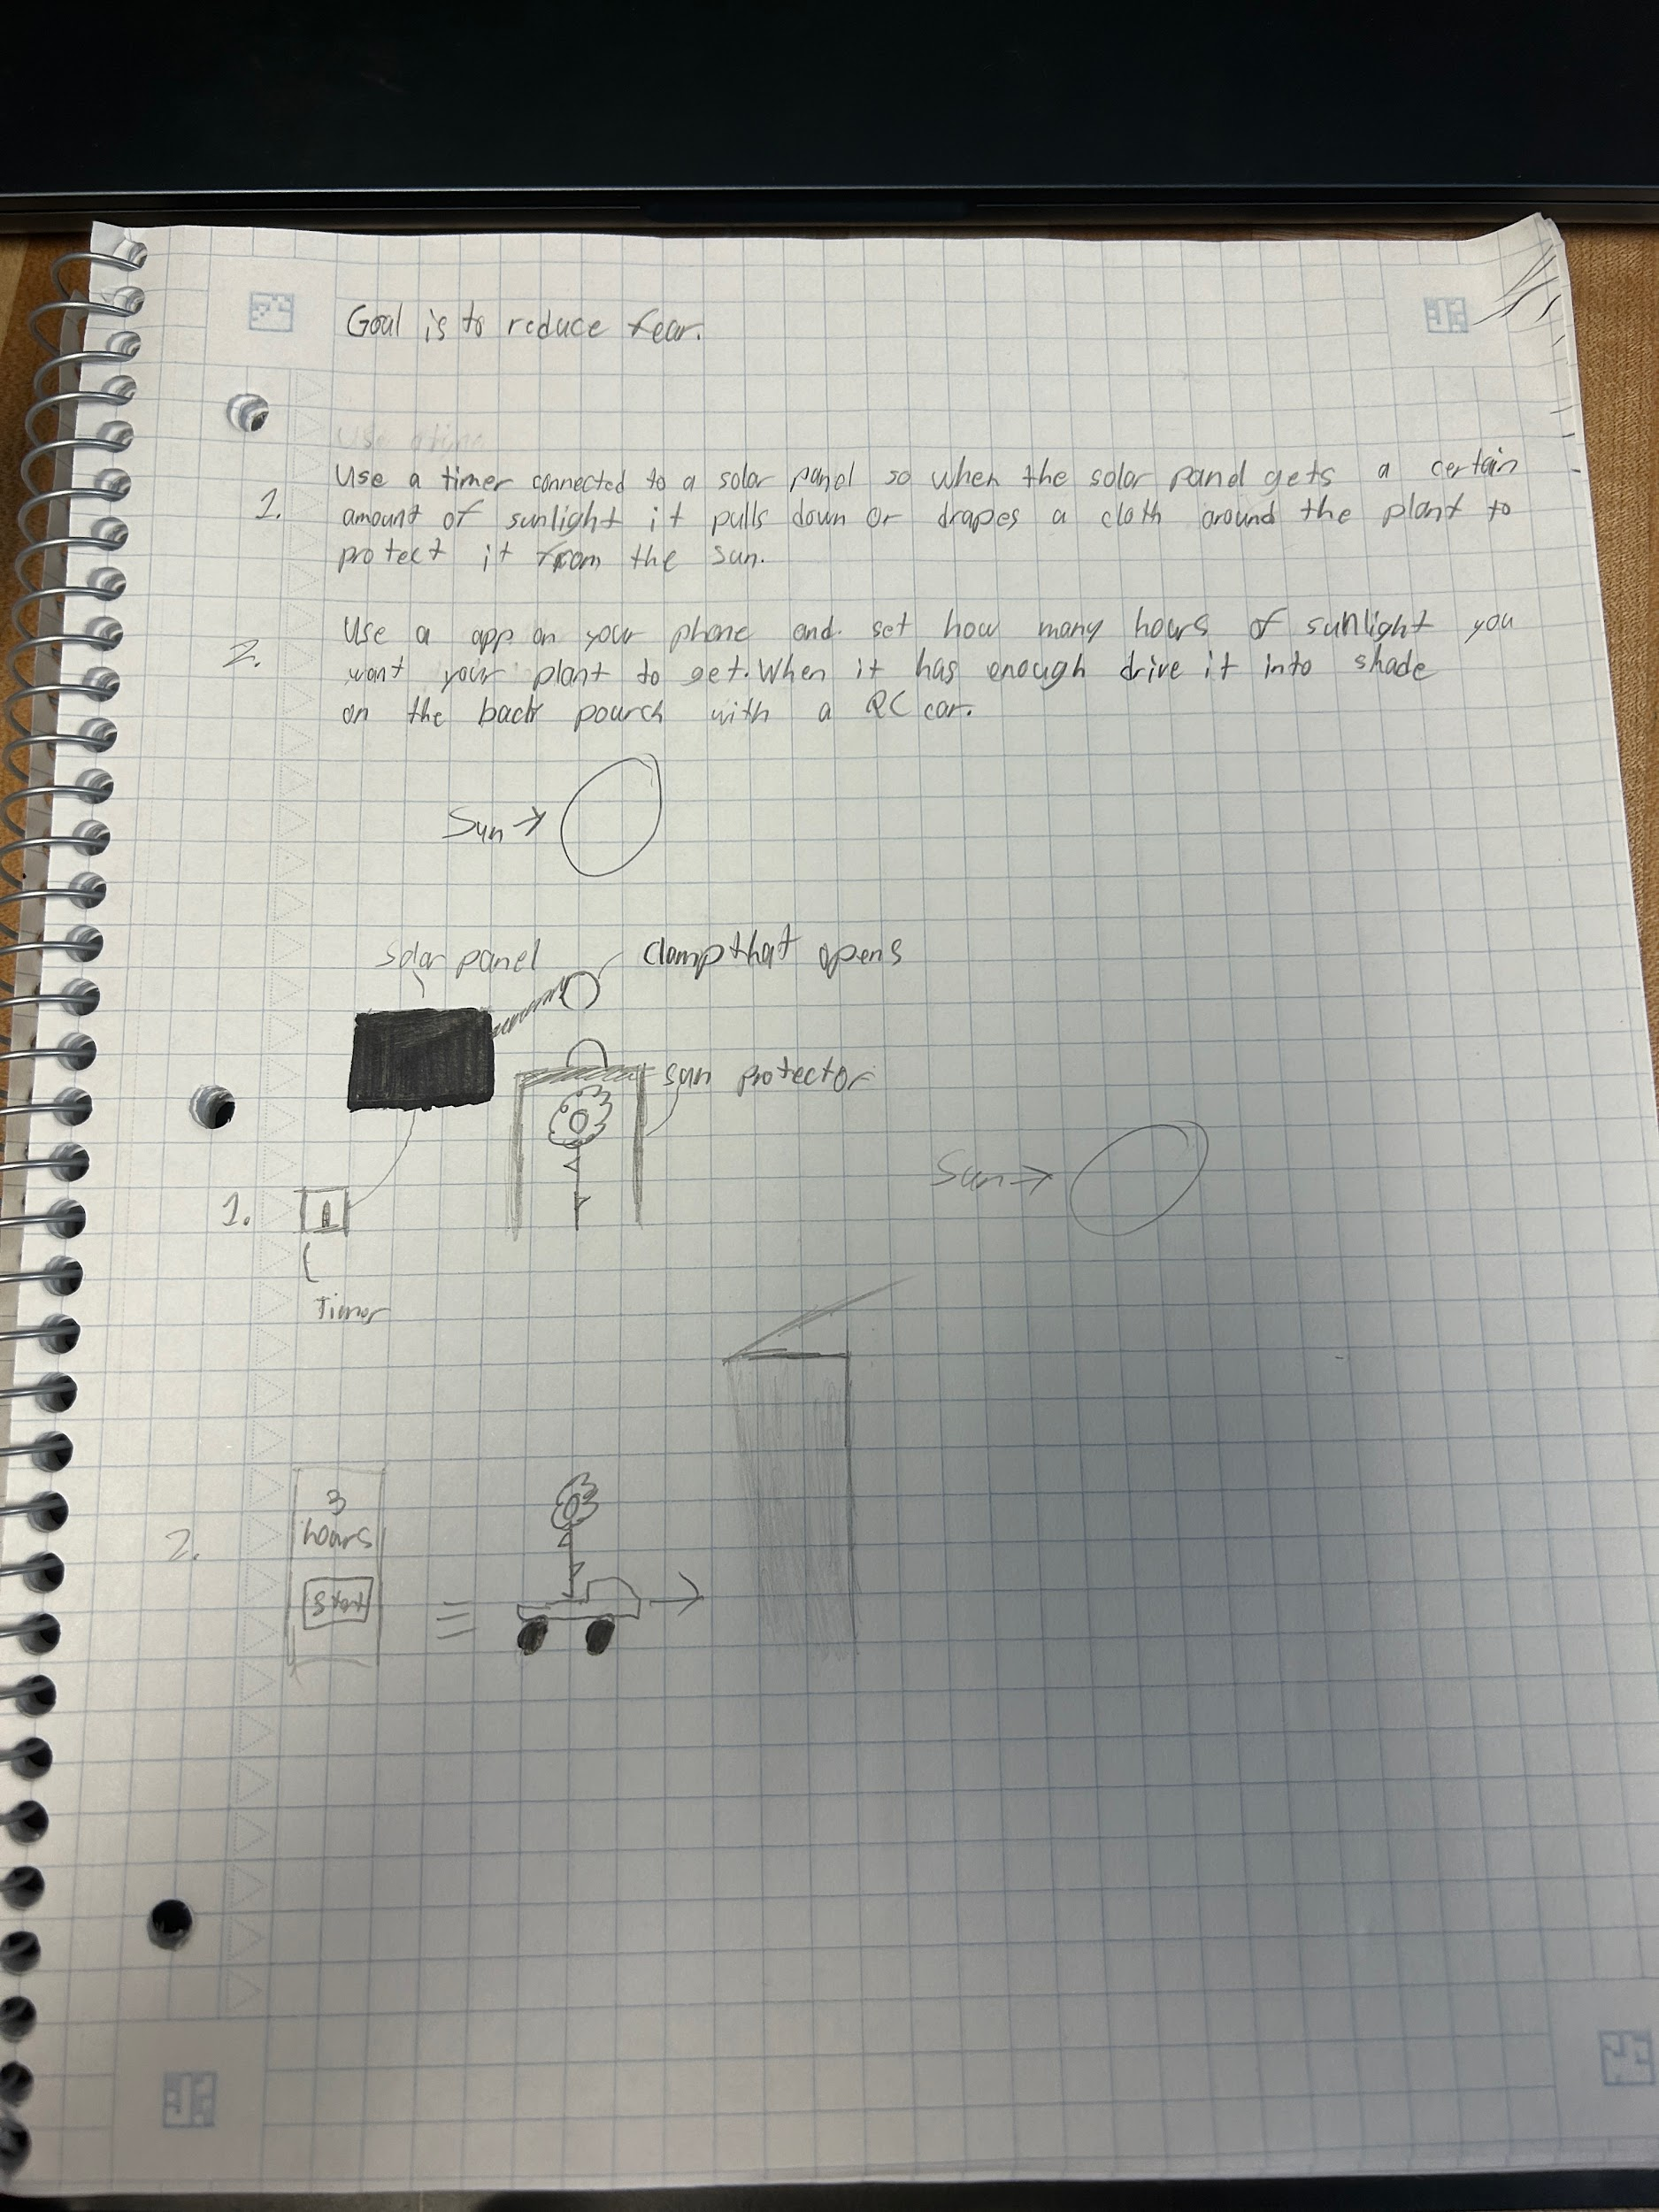 Goal is to reduce fear.
Use a time
Use a timer connected to a solar panel so when the solar panel gets a certain
1. amount of sunlight it pulls down or drapes a cloth around the plant to
protect it from the sun.
Use a app on your phone and set how many hours of sunlight you
2. want your plant to get. When it has enough drive it into shade
on the back pourch with a RC car.
Sun →
solar panel
clamp that opens
sun protector
1.
Timer
Sun →
2.
3
hours
Start